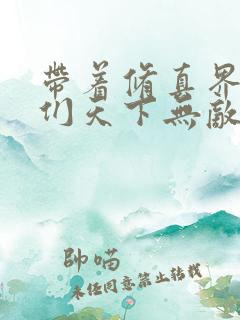 帶着修真界
们天下無敵
帥喵
未经同意禁止转载